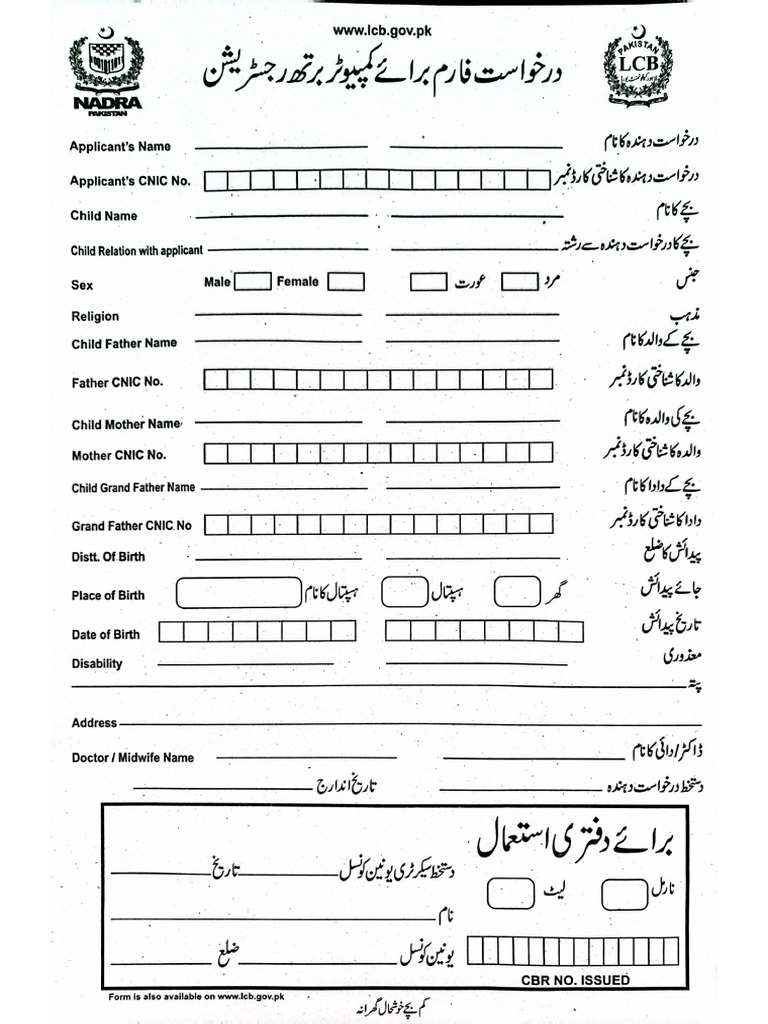 www.lcb.gov.pk
NADRA
PAKISTAN
درخواست فارم برائے کمپیوٹر برتھ رجسٹریشن
PAKISTAN
LCB
Applicant's Name درخواست دہندہ کا نام
Applicant's CNIC No. درخواست دہندہ کا شناختی کارڈ نمبر
Child Name بچے کا نام
Child Relation with applicant بچے کا درخواست دہندہ سے رشتہ
Sex Male Female عورت مرد جنس
Religion مذہب
Child Father Name بچے کے والد کا نام
Father CNIC No. والد کا شناختی کارڈ نمبر
Child Mother Name بچے کی والدہ کا نام
Mother CNIC No. والدہ کا شناختی کارڈ نمبر
Child Grand Father Name بچے کے دادا کا نام
Grand Father CNIC No دادا کا شناختی کارڈ نمبر
Distt. Of Birth پیدائش کا ضلع
Place of Birth ہسپتال کا نام ہسپتال گھر جائے پیدائش
Date of Birth تاریخ پیدائش
Disability معذوری
پتہ
Address
Doctor / Midwife Name ڈاکٹر/دائی کا نام
دستخط درخواست دہندہ تاریخ اندارج
برائے دفتری استعمال
دستخط سیکرٹری یونین کونسل تاریخ
نارمل لیٹ
نام
یونین کونسل ضلع
CBR NO. ISSUED
Form is also available on www.lcb.gov.pk
کم بچے خوشحال گھرانہ